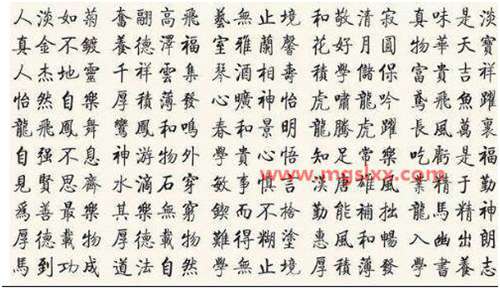 人淡如菊 奮翮高飛 藝無止境 和敬清寂 真味是淡
真金不鍍 養德澤福 室雅蘭馨 花好月圓 物華天寶
人杰地靈 千祥雲集 琴酒相壽 學儲保 富貴吉祥
怡然自樂 厚積薄發 心曠神怡 虎嘯龍吟 鳶飛魚躍
龍飛鳳舞 鸞鳳和鳴 春和景明 龍騰虎躍 長風萬裏
自强不息 神游物外 學貴心悟 知足常樂 吃虧是福
見賢思齊 水滴石穿 敏事慎言 雄風 業精于勤
爲善最樂 其樂無窮 鍥而不捨 勤能補拙 龍馬精神
厚德載物 厚德載物 難得糊塗 惠風和暢 入幽出朗
馬到功成 道法自然 學無止境 厚積薄發 學書養志
www.mgslxx.com